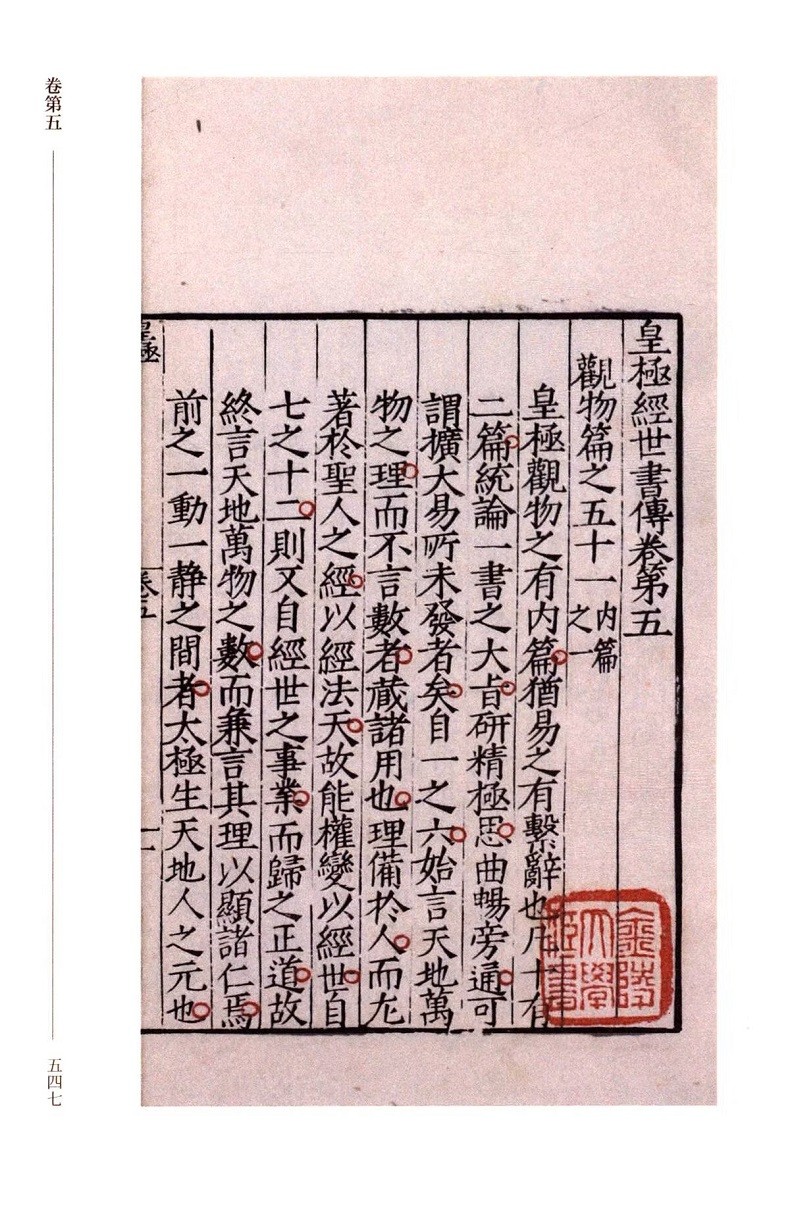 皇極經世書傳卷第五
觀物篇之五十一内篇之一
皇極觀物之有内篇猶易之有繫辭也凡十有
二篇統論一書之大㫖研精極思曲暢旁通可
謂擴大易所未發者矣自一之六始言天地萬
物之理而不言數者藏諸用也理備於人而尤
著於聖人之經以經法天故能權變以經世自
七之十二則又自經世之事業而歸之正道故
終言天地萬物之數而兼言其理以顯諸仁焉
前之一動一静之間者太極生天地人之元也
皇極
卷五
一
金陵大學
卷第五
五四七